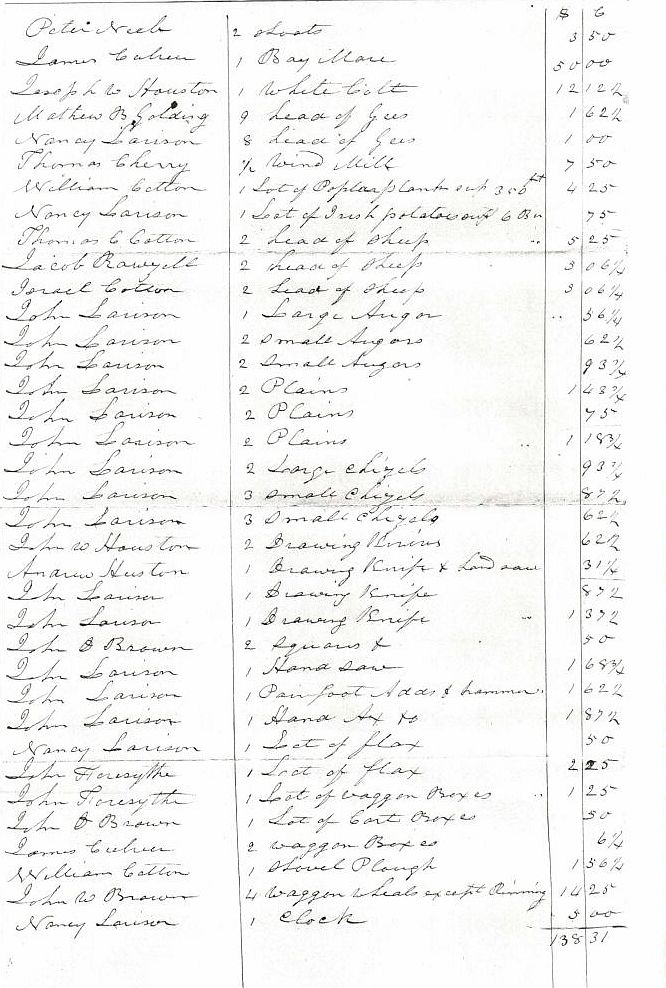 $ C
Peter Neeb 2 Shoats 3 50
James Culver 1 Bay Mare 50 00
Joseph W Houston 1 White Colt 12 12½
Mathew B Golding 9 head of Gees 1 62½
Nancy Larison 8 head of Gees 1 00
Thomas Cherry ½ Wind Mill 7 50
William Cotton 1 Lot of Poplar plank sup 300 ft 4 25
Nancy Larison 1 Lot of Irish potatoes sup 6 Bu 75
Thomas C Cotton 2 head of Sheep 5 25
Jacob 2 head of Sheep 3 06¼
Israel Cotton 2 head of Sheep 3 06¼
John Larison 1 Large Augor 56¼
John Larison 2 Small Augors 62½
John Larison 2 Small Augors 93¾
John Larison 2 Plains 1 43¾
John Larison 2 Plains 75
John Larison 2 Plains 1 18¾
John Larison 2 Large Chizels 93¾
John Larison 3 Small Chizels 87½
John Larison 3 Small Chizels 62½
John W Houston 2 Drawing Knives 62½
Andrew Huston 1 Drawing Knife & hand saw 31¼
John Larison 1 Drawing Knife 87½
John Larison 1 Drawing Knife 1 37½
John B Brown 2 Squares & 50
John Larison 1 Hand Saw 1 68¾
John Larison 1 Pair foot Adds & hammer 1 62½
John Larison 1 Hand Ax to 1 87½
Nancy Larison 1 Lot of flax 50
John Foresythe 1 Loot of flax 2 25
John Foresythe 1 Lot of waggon Boxes 1 25
John B Brown 1 Lot of Cart Boxes 50
James Culver 2 waggon Boxes 6¼
William Cotton 1 Shovel Plough 1 56¼
John W Brown 4 waggon wheals except Rimming 14 25
Nancy Larison 1 Clock 5 00
138 31